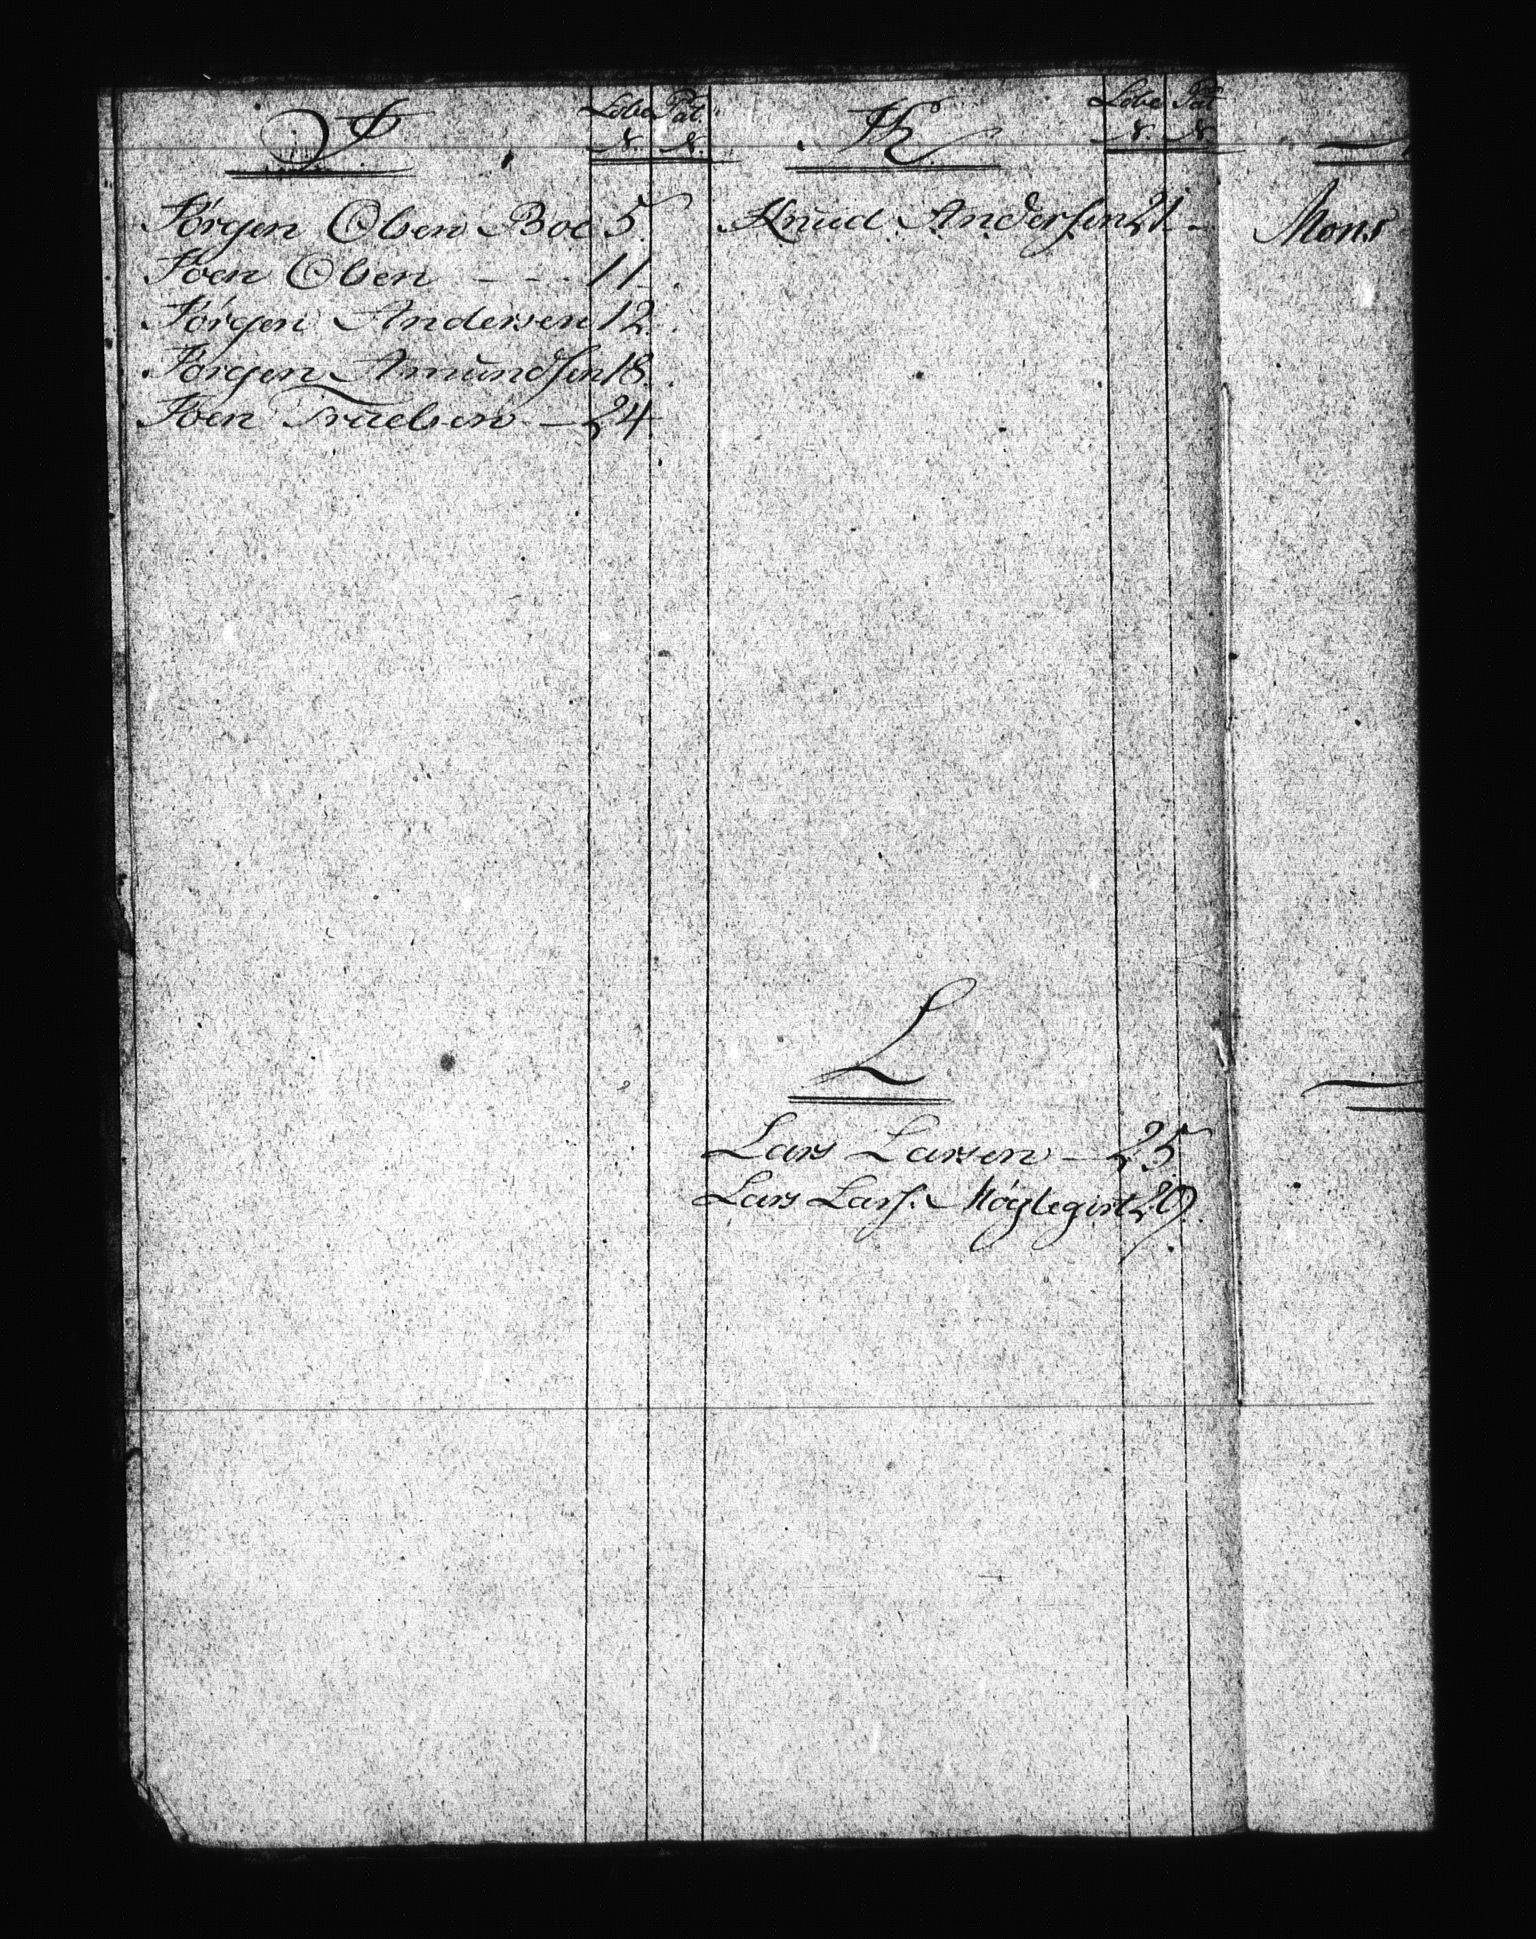 J
Løbe Pat.
N. N.
Jørgen Olsen Boe 5.
Joen Olsen - - - 11.
Jørgen Andersen 12.
Jørgen Amundsen 18.
Joen Truelsen - 24.
K
Løbe Pat
N. N.
Knud Andersen 21.
L
Lars Larsen - 25
Lars Lars.
29.
Mons